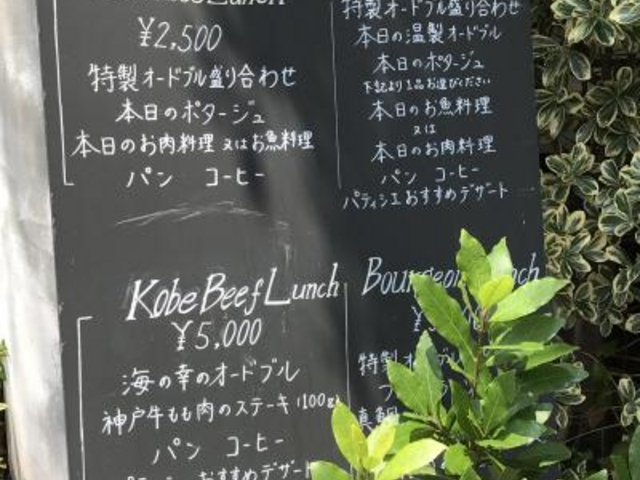 Lunch
¥2,500
特製オードブル盛り合わせ
本日のポタージュ
本日のお肉料理 又はお魚料理
パン コーヒー
特製オードブル盛り合わせ
本日の温製オードブル
本日のポタージュ
下記より1品お選びください
本日のお魚料理
又は
本日のお肉料理
パン コーヒー
パティシエおすすめデザート
Kobe Beef Lunch
¥5,000
海の幸のオードブル
神戸牛もも肉のステーキ(100g)
パン コーヒー
おすすめデザート
Bourgeon Lunch
特製オード
真鯛